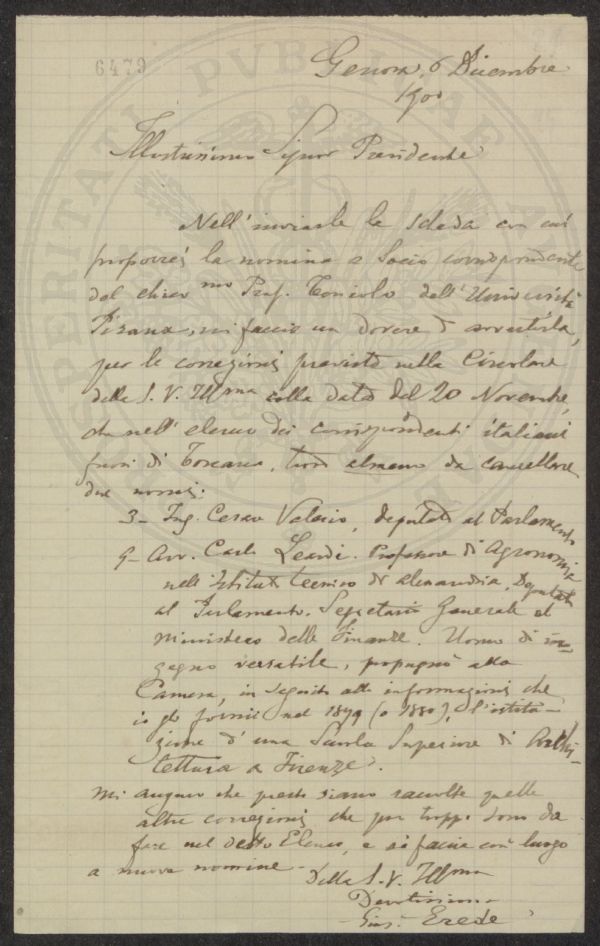 6479
Genova, 6 Dicembre
1900
Illustrissimo Signor Presidente
Nell'inviarle la scheda con cui
proporrei la nomina a Socio corrispondente
del chiarmo Prof. Toniolo dell'Università
Pisana, mi faccio un dovere d'avvertirla,
per le correzioni previste nella Circolare
della S. V. Illma colla data del 20 Novembre,
che nell'elenco dei corrispondenti italiani
fuori di Toscana, trovo almeno da cancellare
due nomi:
3 - Ing. Cesare Valerio, deputato al Parlamento
9 - Avv. Carlo Leardi. Professore di Agronomia
nell'Istituto tecnico di Alessandria, Deputato
al Parlamento. Segretario Generale al
Ministero delle Finanze. Uomo di in-
gegno versatile, propugnò alla
Camera, in seguito alle informazioni che
io gli fornii nel 1879 (o 1880), l'istitu-
zione d'una Scuola Superiore di Archi-
tettura a Firenze.
Mi auguro che presto siano raccolte quelle
altre correzioni che pur troppo sono da
fare nel detto Elenco, e si faccia così luogo
a nuove nomine -
Della S. V. Illma
Devotissimo
Gius. Erede
PROSPERITATI PVBLICAE AVGENDAE